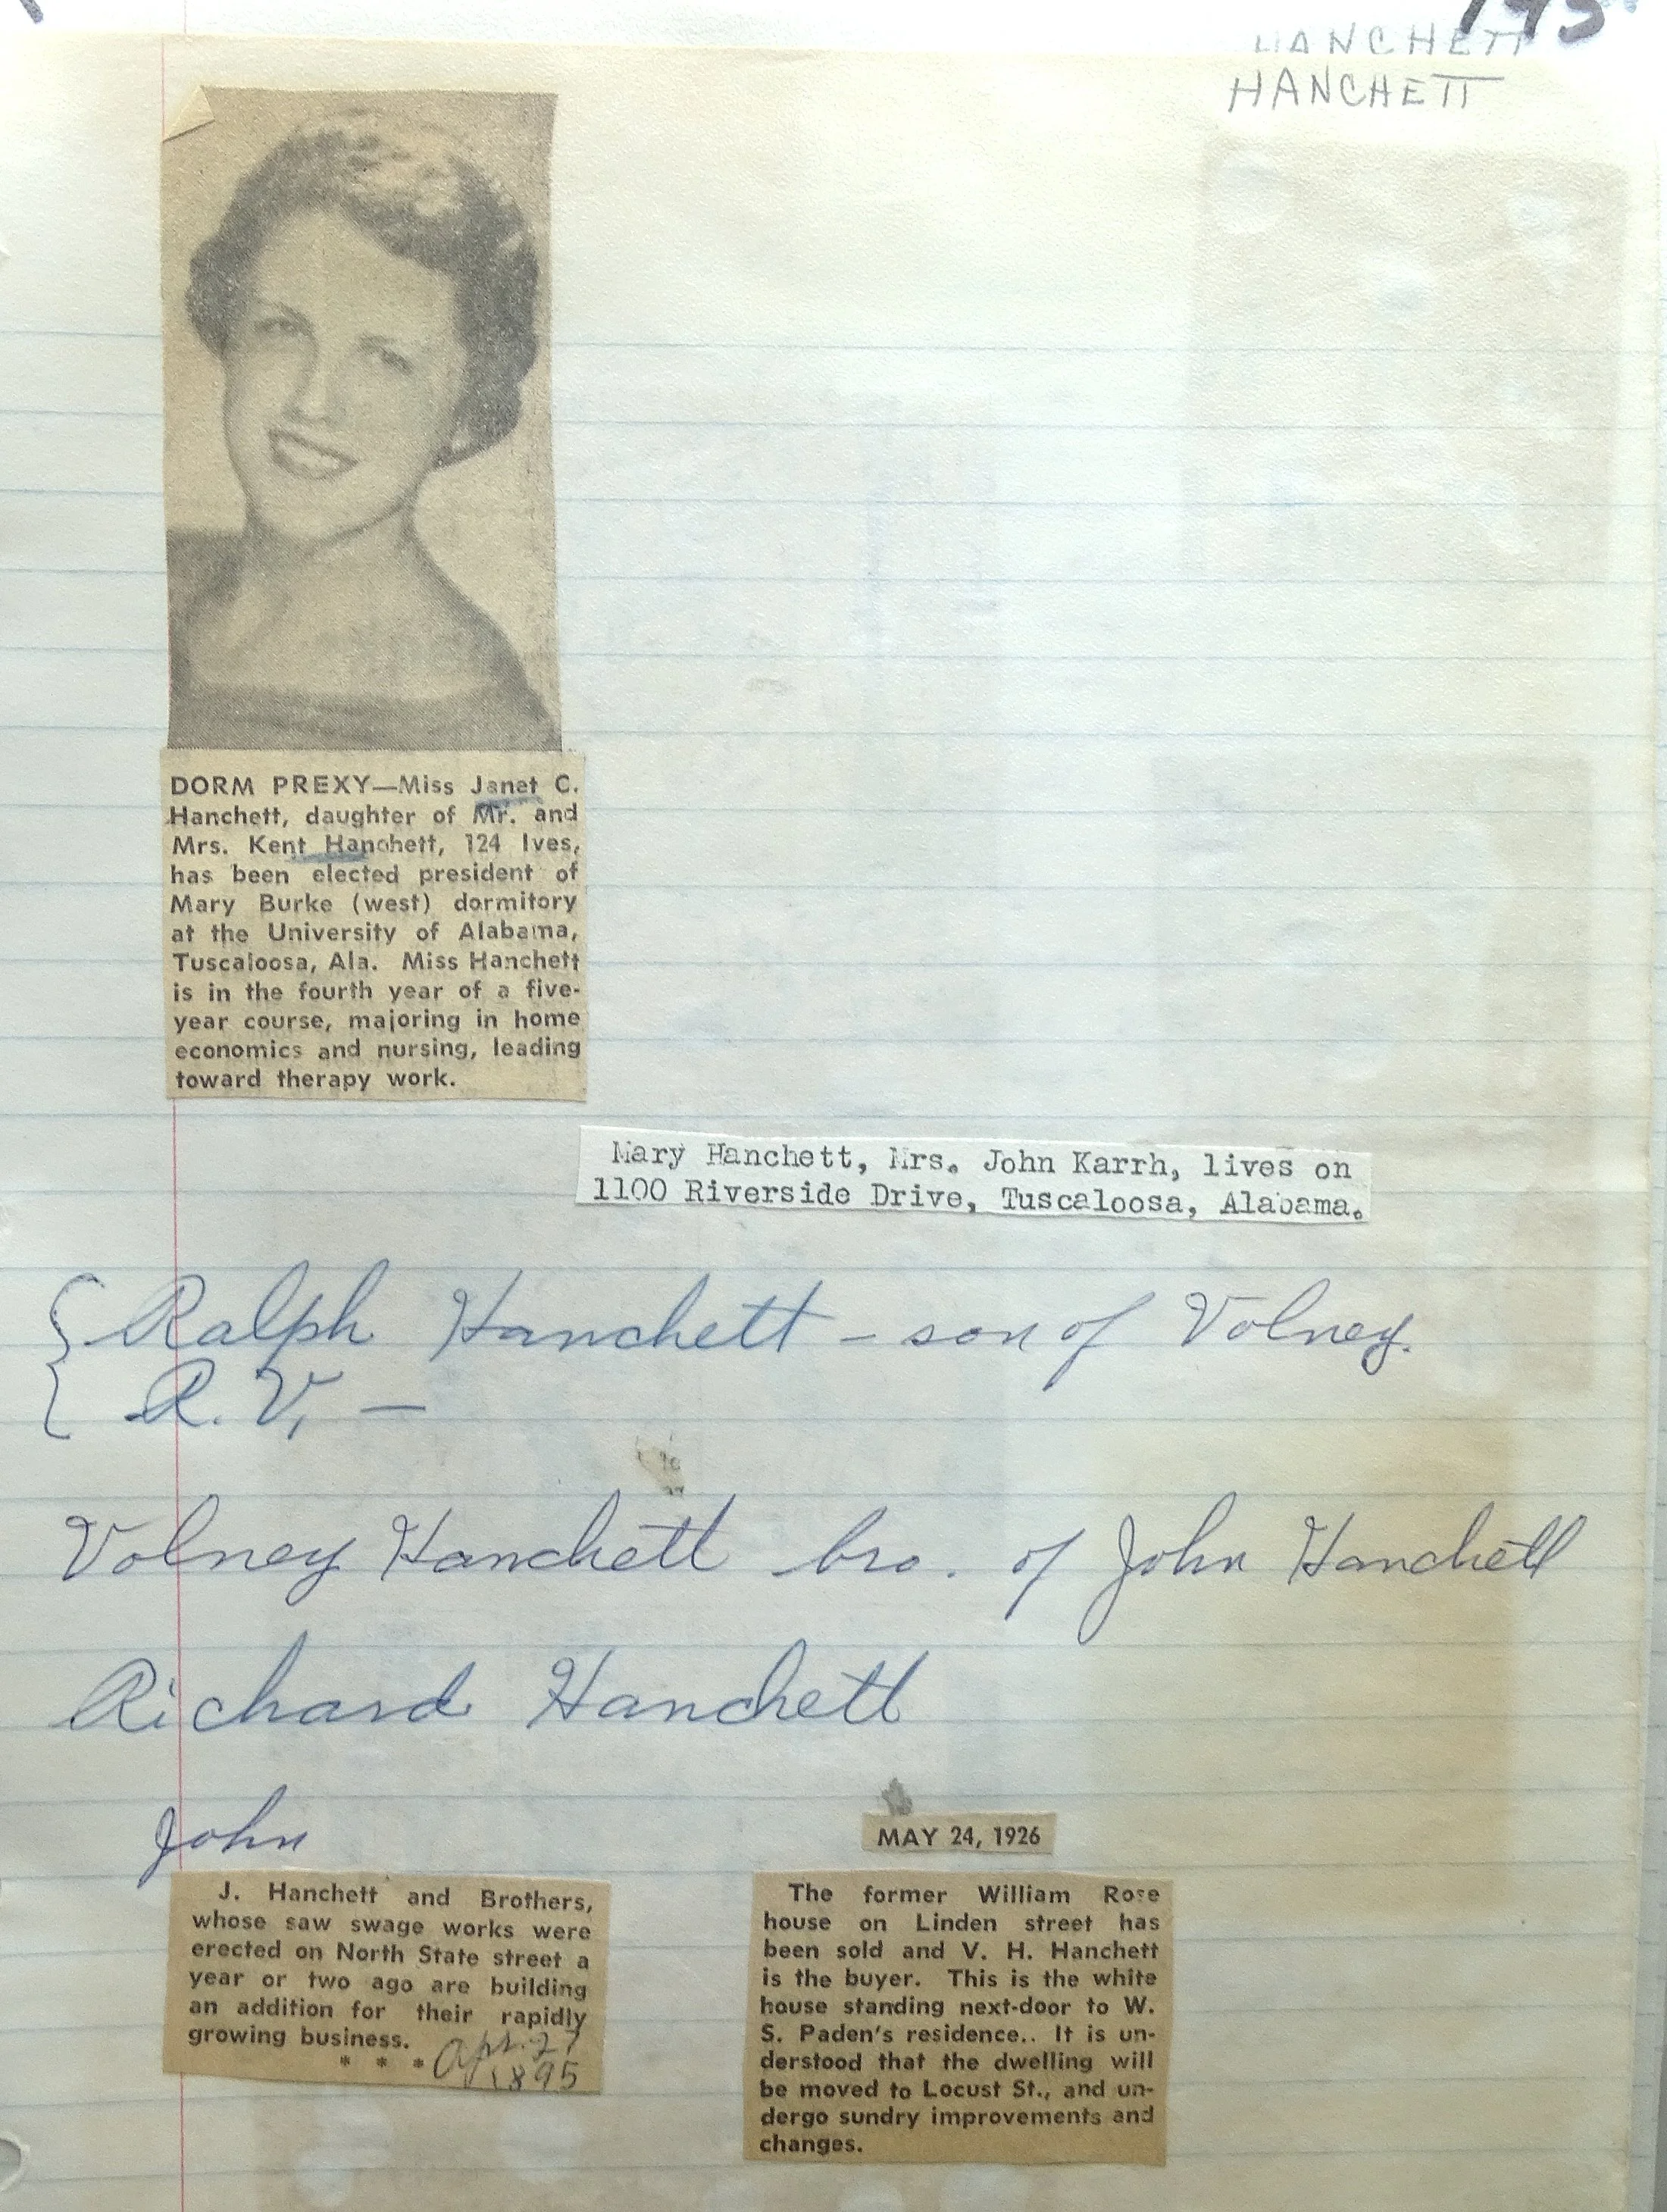 HANCHETT
HANCHETT
DORM PREXY—Miss Janet C.
Hanchett, daughter of Mr. and
Mrs. Kent Hanchett, 124 Ives,
has been elected president of
Mary Burke (west) dormitory
at the University of Alabama,
Tuscaloosa, Ala. Miss Hanchett
is in the fourth year of a five-
year course, majoring in home
economics and nursing, leading
toward therapy work.
Mary Hanchett, Mrs. John Karrh, lives on
1100 Riverside Drive, Tuscaloosa, Alabama.
Ralph Hanchett - son of Volney.
R. V. -
Volney Hanchett bro. of John Hanchett
Richard Hanchett
John
J. Hanchett and Brothers,
whose saw swage works were
erected on North State street a
year or two ago are building
an addition for their rapidly
growing business.
* * * Apr. 27
1895
MAY 24, 1926
The former William Rose
house on Linden street has
been sold and V. H. Hanchett
is the buyer. This is the white
house standing next-door to W.
S. Paden's residence.. It is un-
derstood that the dwelling will
be moved to Locust St., and un-
dergo sundry improvements and
changes.